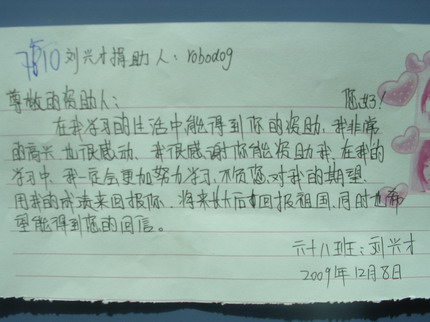 刘兴才捐助人：robodog
尊敬的资助人： 您好！
在我学习的生活中能得到你的资助，我非常
的高兴也很感动，我很感谢你能资助我，在我的
学习中，我一定会更加努力学习，不负您对我的期望
用我的成表来回报你，将来长大后回报祖国，同时也希
望能得到您的回信。
六十八班：刘兴才
2009年12月8日